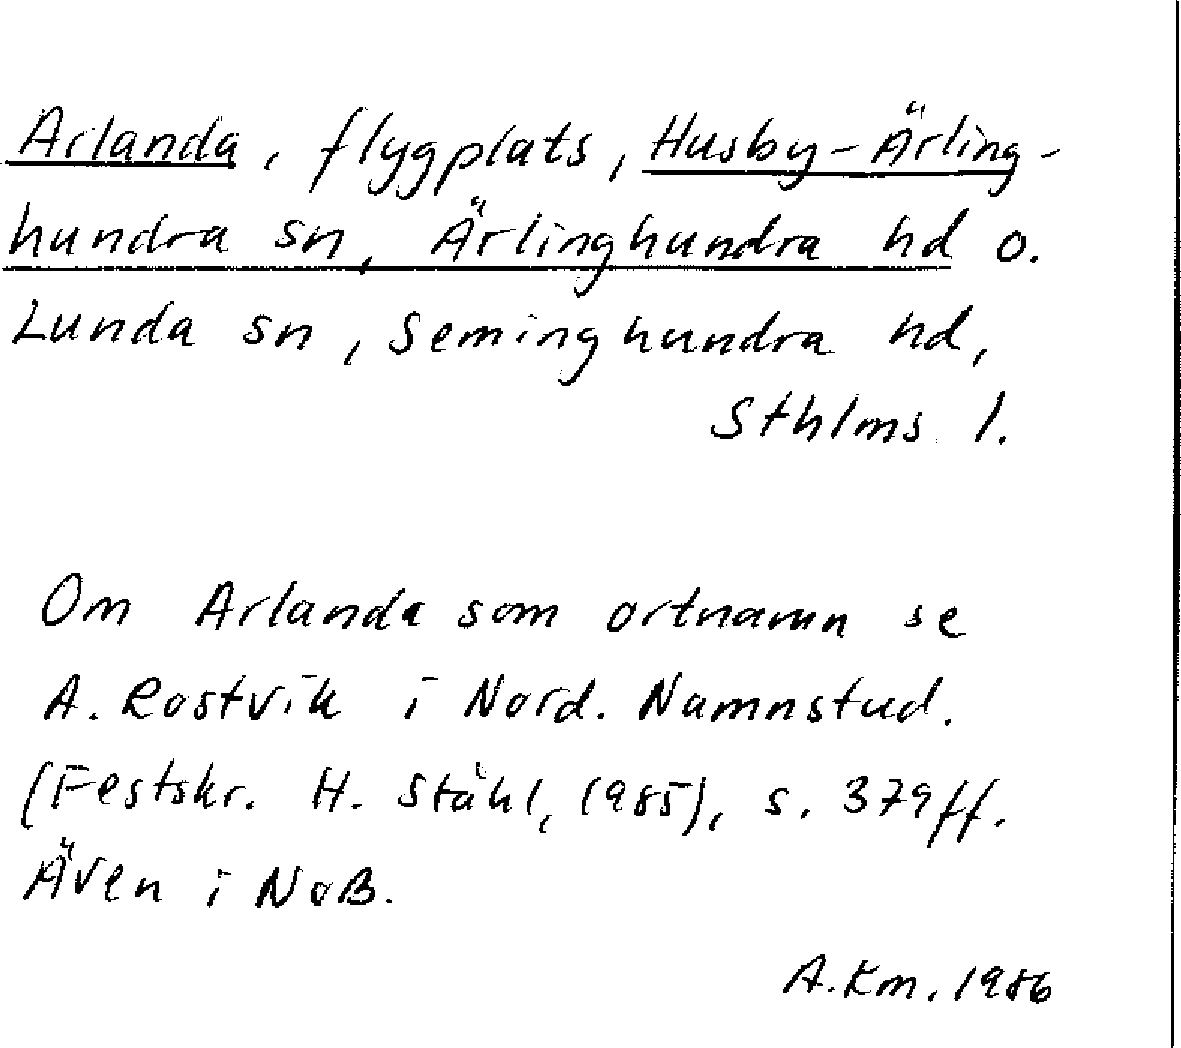 Arlanda, flygplats, Husby-Ärling-
hundra sn, Ärlinghundra hd o.
Lunda sn, Seminghundra hd,
Sthlms l.
Om Arlanda som ortnamn se
A. Rostvik i Nord. Namnstud.
(Festskr. H. Ståhl, 1985), s. 379ff.
Även i NoB.
A.Km. 1986